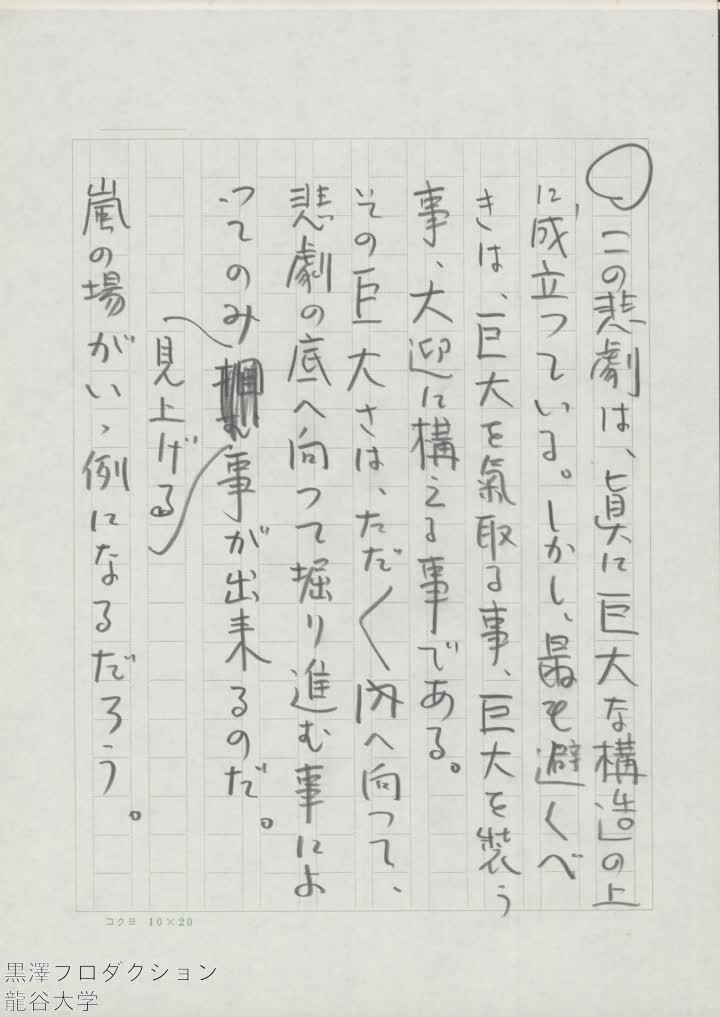 ○この悲劇は、眞に巨大な構造の上
に成立つている。しかし、最も避くべ
きは、巨大を氣取る事、巨大を装う
事、大迎に構える事である。
その巨大さは、ただ〱内へ向って、
悲劇の底へ向って掘り進む事によ
ってのみ事が出来るのだ。
見上げる
嵐の場がいゝ例になるだろう。
コクヨ 10×20
黒澤プロダクション
龍谷大学